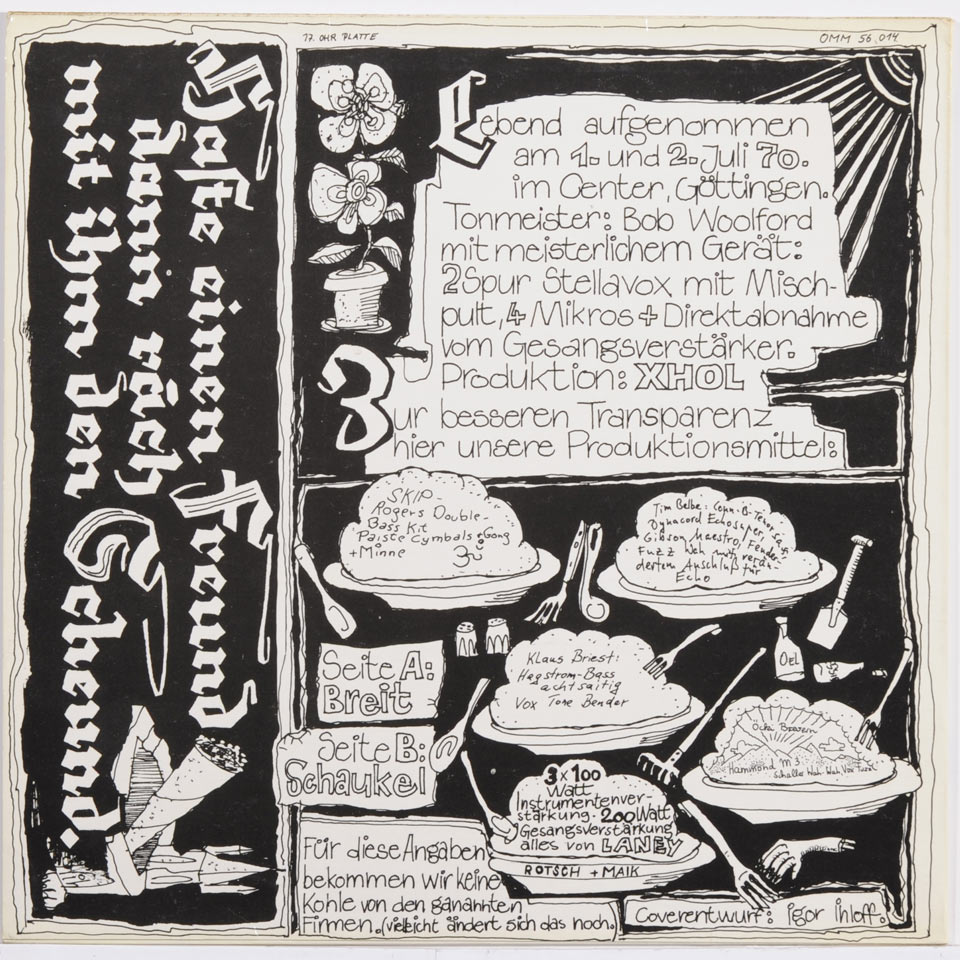 17. OHR PLATTE
OMM 56.014
Haste einen Freund
dann räch
mit ihm den Scheund.
Lebend aufgenommen
am 1. und 2. Juli 70.
im Center, Göttingen.
Tonmeister: Bob Woolford
mit meisterlichem Gerät:
2 Spur Stellavox mit Misch-
pult, 4 Mikros + Direktabnahme
vom Gesangsverstärker.
Produktion: XHOL
Zur besseren Transparenz
hier unsere Produktionsmittel:
SKIP-
Rogers Double-
Bass Kit
Paiste Cymbals + Gong
+ Minne
Tim Belbe: Conn-B-Tenor, Sax
Dynacord Echosuper,
Gibson Maestro, Fender
Fuzz Wah mit verän-
dertem Anschluß für
Echo
Seite A:
Breit
Klaus Briest:
Hagstrom-Bass
achtsaitig
Vox Tone Bender
OeL
Seite B:
Schaukel
Öcki Brevern
Hammond M3
Schaller Wah-Wah Vox
3 x 100
Watt
Instrumentenver-
stärkung. 200 Watt
Gesangsverstärkung
alles von LANEY
ROTSCH + MAIK
Für diese Angaben
bekommen wir keine
Kohle von den ganannten
Firmen. (vielleicht ändert sich das noch.)
Coverentwurf: igor ihloff.